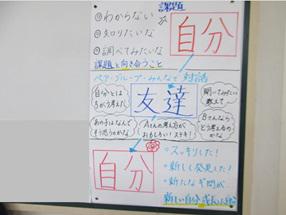 課題
◎わからない
が
◎知りたいな
◎調べてみたいな
自分
課題と向き合うこと
ペア・グループ・みんなで 対話
自分とは
ちがう考え
友達
聞いてみたい
教えて
あの子はなんで
そう思うのかな
Aさんの考え方が
おもしろい!ステキ!
Bさんなら
どう考えるの
かな
自分
・スッキリした!
・新しく発見だ!
・新たなギ問が
新しい自分